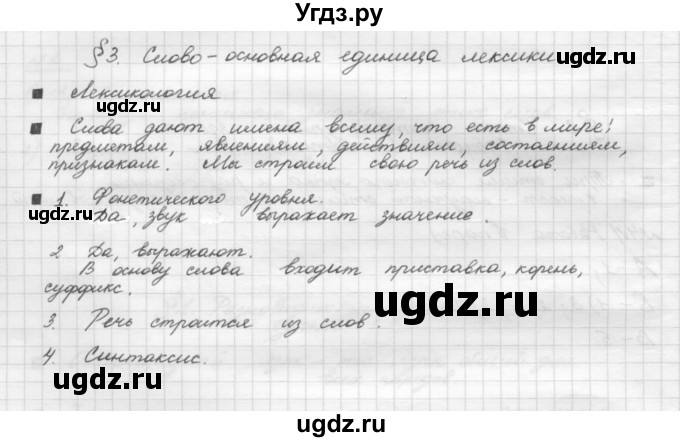 Угдз.ру
§3. Слово - основная единица лексики
Лексикология
ugdz.ru
ugdz.ru
Слова дают имена всему, что есть в мире:
предметам, явлениям, действиям, состояниям,
признакам. Мы строим свою речь из слов.
ugdz.ru
1. Фонетического уровня.
ugdz.ru
Да, звук выражает значение.
2 Да, выражают.
В основу слова входит приставка, корень,
суффикс.
ugdz.ru
3. Речь строится из слов.
4. Синтаксис.
ugdz.ru
ugdz.ru
ugdz.ru